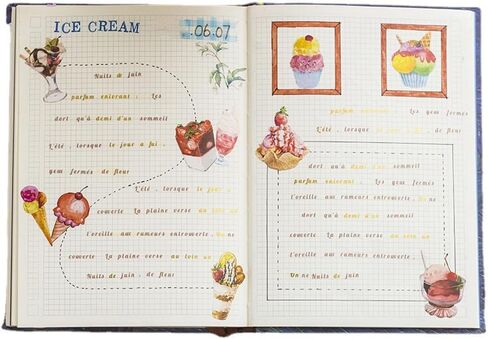 ICE CREAM
.06.07
Nuits de juin
parfum enivrant : Les
dort qu'à demi d'un sommeil
L'été, lorsque le jour a fui,
yeux fermés de fleur
L'été, lorsque le jour a
couverte La plaine verse au loin un
l'oreille aux rumeurs entrouverte. Un ne
couverte La plaine verse au loin un
Nuits de juin, de fleur
parfum enivrant : Les yeux fermés
L'été, lorsque le jour a fui, de fleur
dort qu'à demi d'un sommeil
parfum enivrant : Les yeux fermés
l'oreille aux rumeurs entrouverte. Un ne
dort qu'à demi d'un sommeil
couverte La plaine verse au loin un
l'oreille aux rumeurs entrouverte.
Un ne Nuits de juin